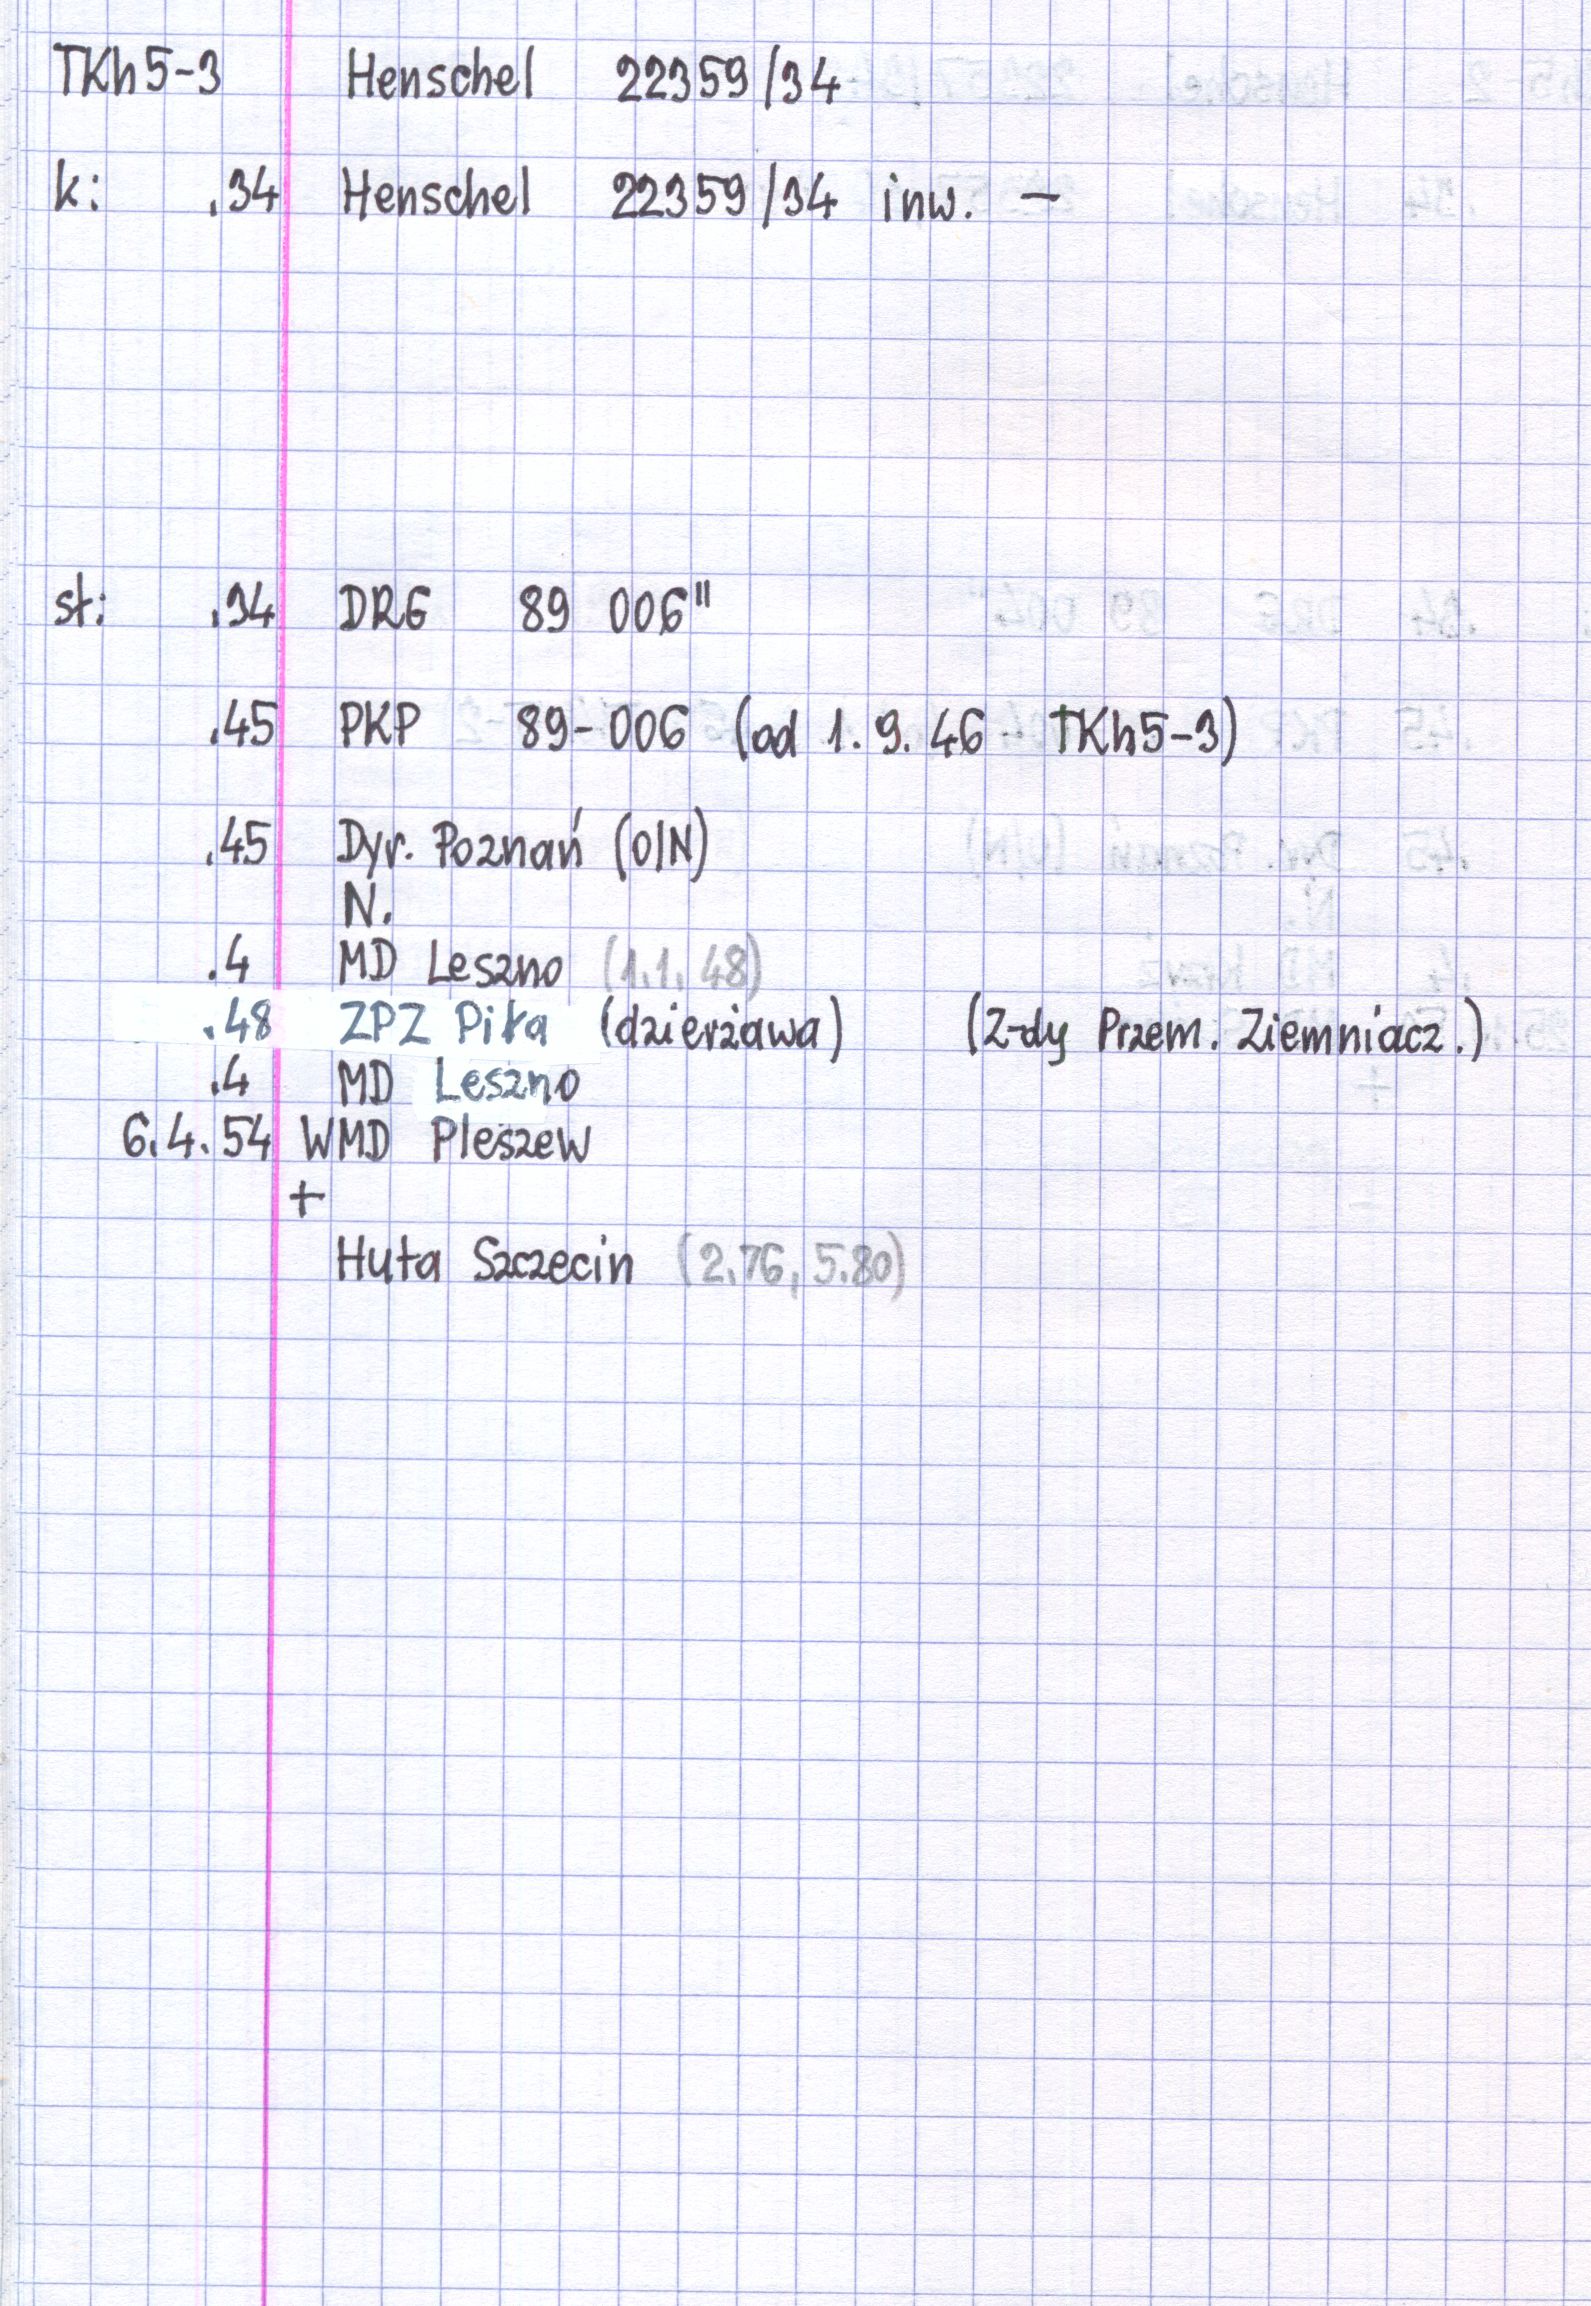 TKh5-3 Henschel 22359/34
k: .34 Henschel 22359/34 inw. —
st: .34 DRG 89 006"
.45 PKP 89-006 (od 1.9.46 TKh5-3)
.45 Dyr. Poznań (O/N)
N.
.4 MD Leszno (1.1.48)
.48 ZPZ Piła (dzierżawa) (Z-dy Przem. Ziemniacz.)
.4 MD Leszno
6.4.54 WMD Pleszew
+
Huta Szczecin (2.76, 5.80)